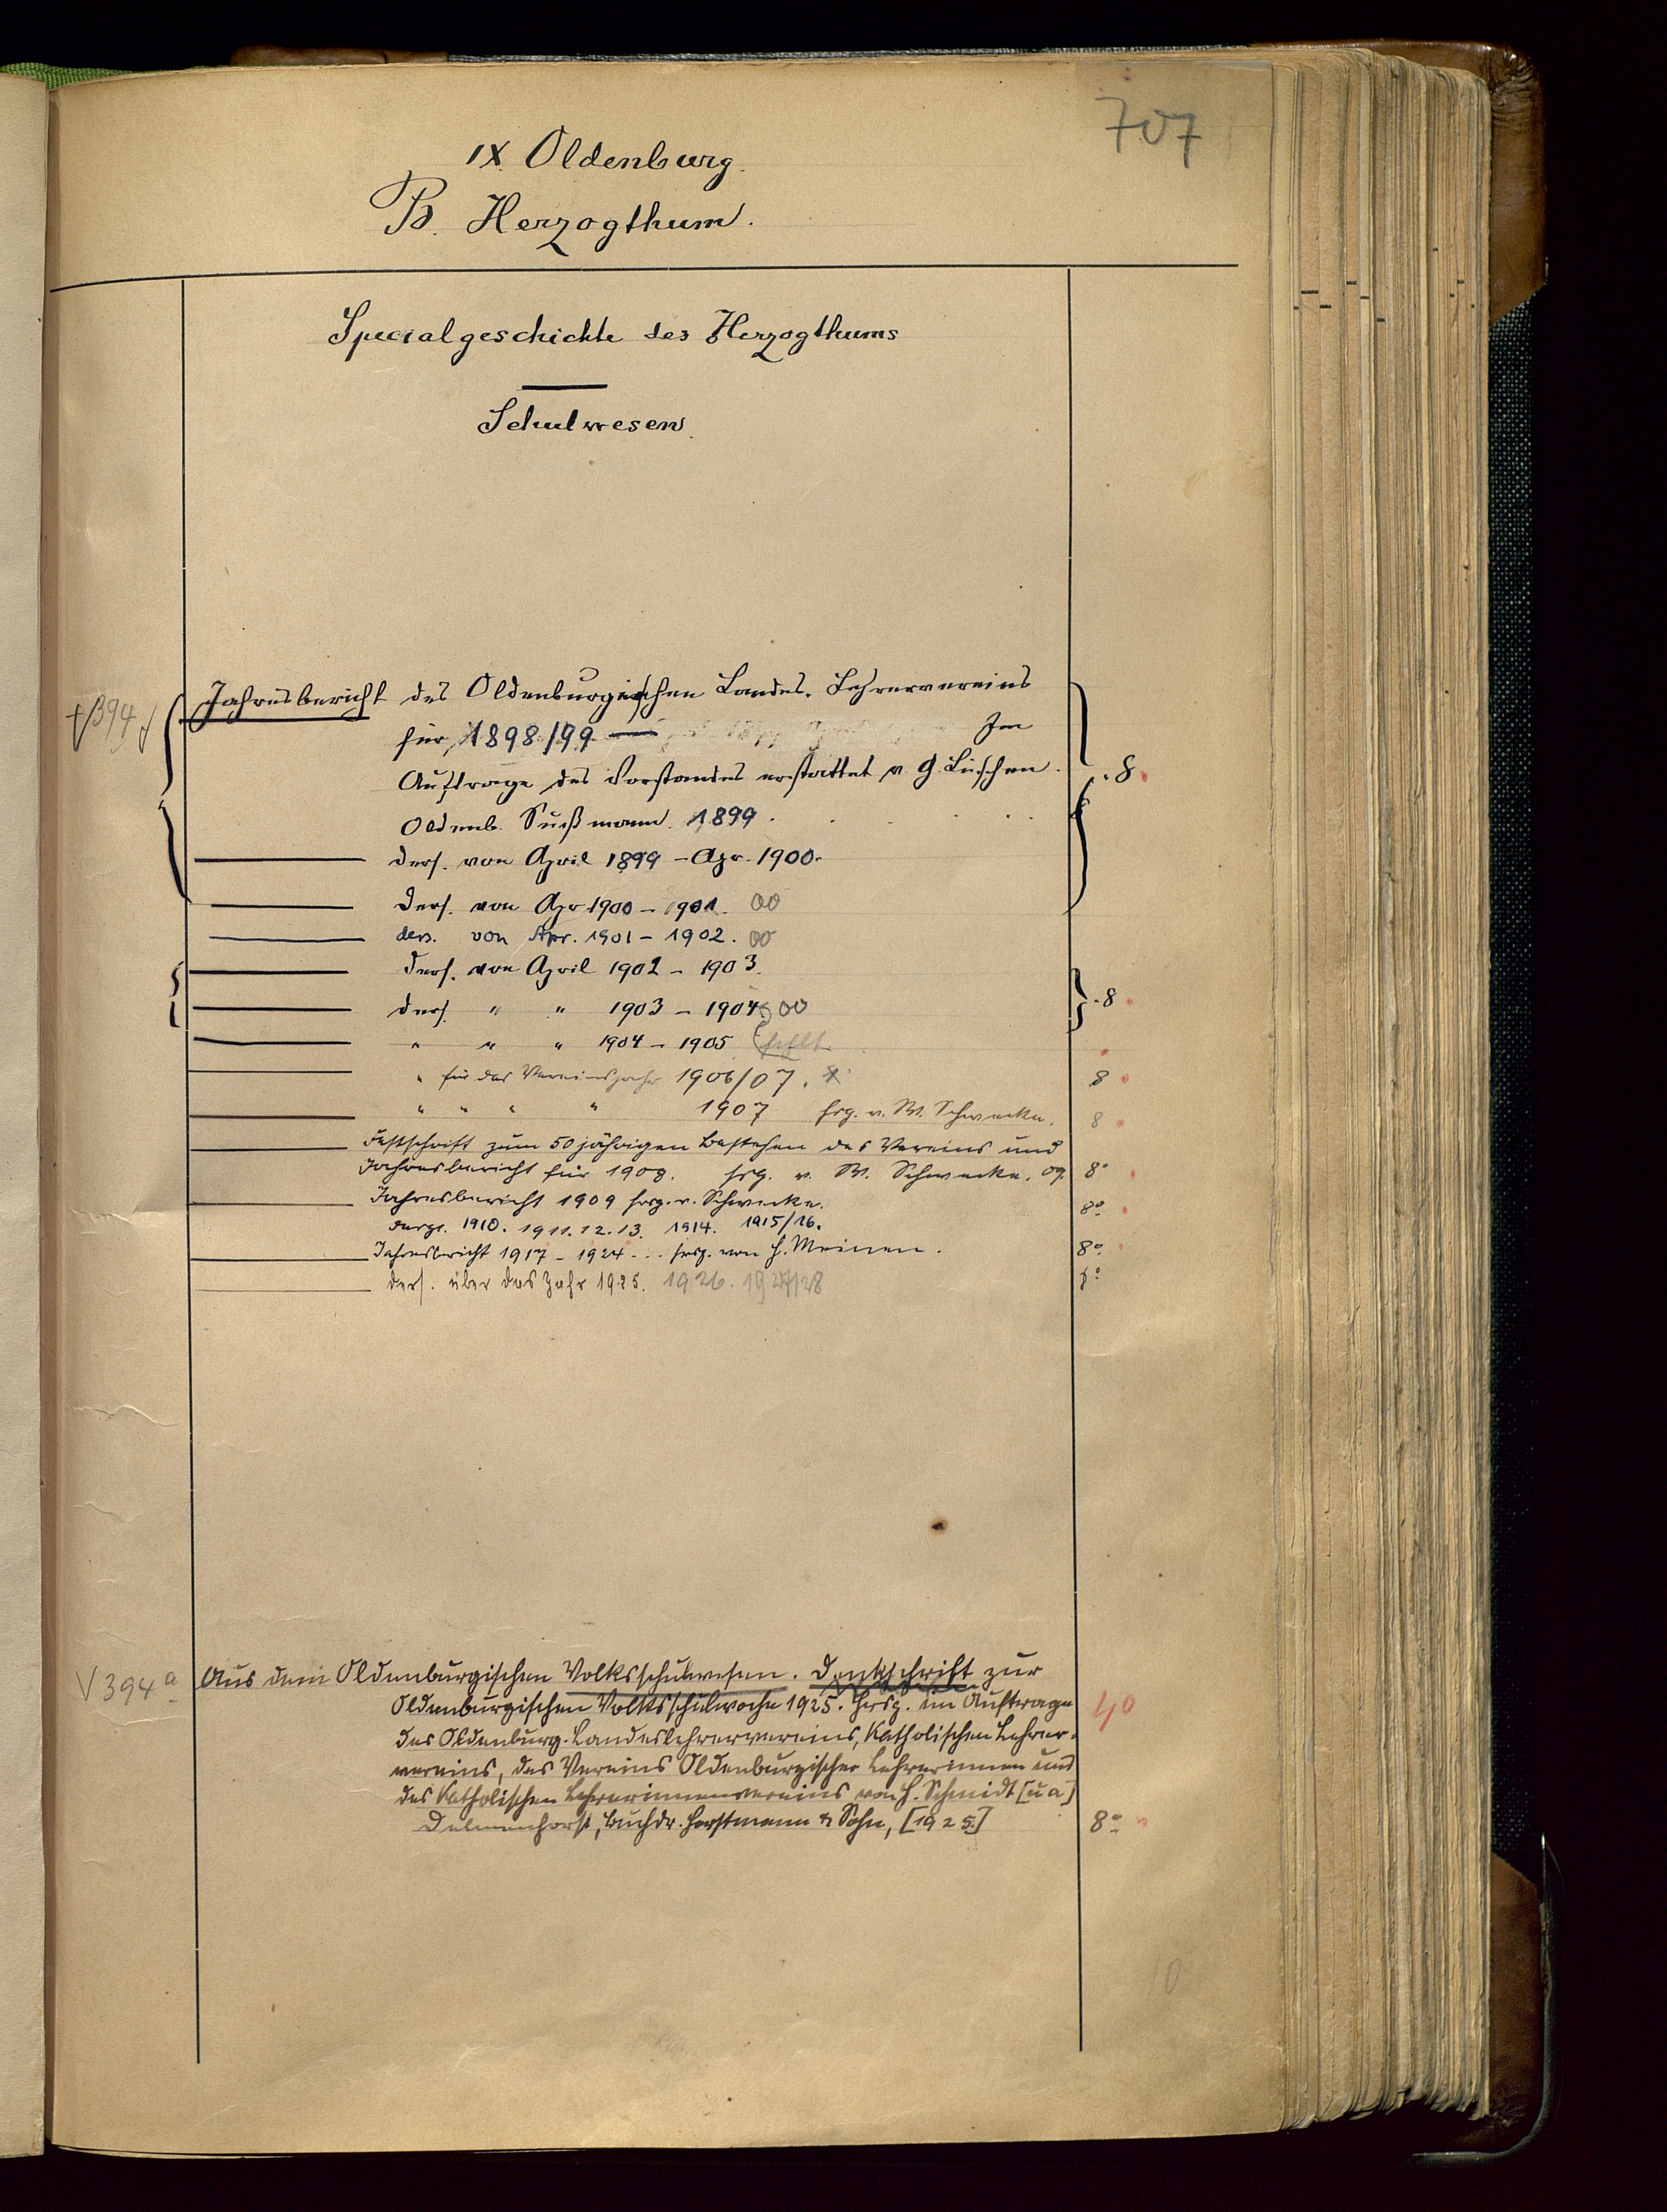 707
IX. Oldenburg.
B. Herzogthum.
Specialgeschichte des Herzogthums
Schulwesen.
394
Jahresbericht des Oldenburgischen Landes-Lehrervereins
für 1898/99 — Im
Auftrage des Vorstandes erstattet v. G. Lüschen.
Oldenb. Sußmann. 1899. 8.
ders. von April 1899 - Apr. 1900.
ders. von Apr 1900 - 1901. 00
ders. von Apr. 1901 - 1902. 00
ders. von April 1902 - 1903.
ders. " " 1903 - 1904. 00 8.
" " " 1904 - 1905 (fehlt
" für das Vereinsjahr 1906/07. 8
" " " " 1907 hrg. v. W. Schwecke. 8
Festschrift zum 50jährigen Bestehen des Vereins und
Jahresbericht für 1908. hrg. v. W. Schwecke. 09. 8°
Jahresbericht 1909 hrg. v. Schwecke. 8°
desgl. 1910. 1911. 12. 13. 1914. 1915/16.
Jahresbericht 1917 - 1924 ... hrsg. von H. Meinen. 8°
ders. über das Jahr 1925. 1926. 1927/28 8°
V 394 a
Aus dem Oldenburgischen Volksschulwesen. Denkschrift zur
Oldenburgischen Volksschulwoche 1925. Hrsg. im Auftrage
des Oldenburg. Landeslehrervereins, Katholischen Lehrer-
vereins, des Vereins Oldenburgischer Lehrerinnen und
des Katholischen Lehrerinnenvereins von H. Schmidt [u a]
Delmenhorst, Buchdr. Horstmann & Sohn, [1925] 8°